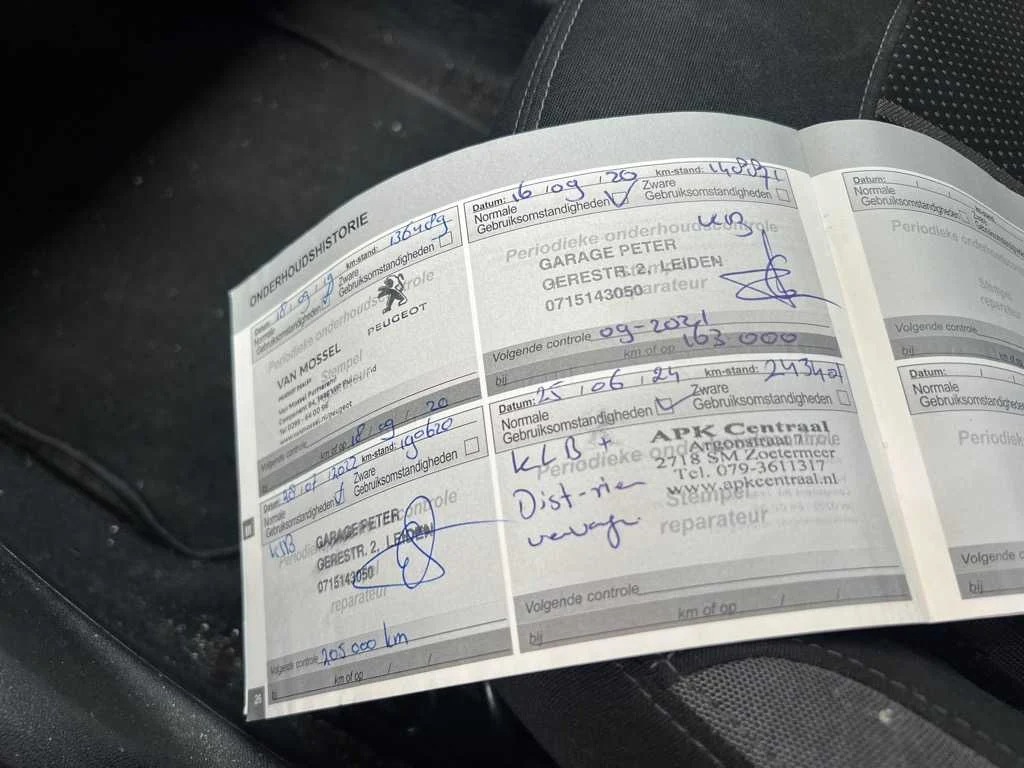 ONDERHOUDSHISTORIE
Datum: 18 , 09 , 19 km-stand: 136489
Normale Zware
Gebruiksomstandigheden Gebruiksomstandigheden
Periodieke onderhoudscontrole
PEUGEOT
VAN MOSSEL
Stempel
Volgende controle
km of op 18 , 09 , 20
Datum: 16 , 09 , 20 km-stand:
Normale Zware
Gebruiksomstandigheden Gebruiksomstandigheden
Periodieke onderhoudscontrole
GARAGE PETER
Stempel
GERESTR. 2, LEIDEN
0715143050
reparateur
Volgende controle 09-2021
bij km of op 163.000
Datum: 07 , 2022 km-stand: 190620
Normale Zware
Gebruiksomstandigheden Gebruiksomstandigheden
Periodieke onderhoudscontrole
GARAGE PETER
GERESTR. 2, LEIDEN
0715143050
reparateur
Volgende controle 205000 km
km of op / /
26
Datum: 25 , 06 , 24 km-stand: 243401
Normale Zware
Gebruiksomstandigheden Gebruiksomstandigheden
KLB +
Dist-riem
APK Centraal
Argonstraat 7
2718 SM Zoetermeer
Tel. 079-3611317
www.apkcentraal.nl
Periodieke
Stempel
reparateur
Volgende controle
bij km of op / /
Datum: / /
Normale
Gebruiksomstandigheden
Periodieke
Stempel
reparateur
Volgende controle
bij
Datum: / /
Normale
Gebruiksomstandigheden
Volgende controle
bij